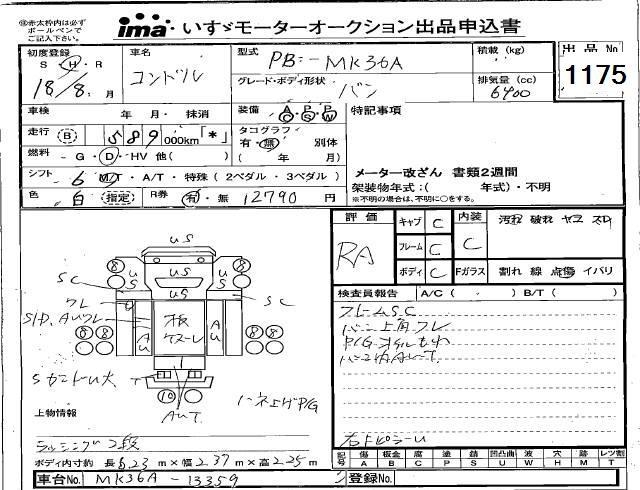 ※赤太枠内は必ず
ボールペンで
ご記入下さい。
ima いすゞモーターオークション出品申込書
初度登録
S・H・R
18/8 月
車名
コンドル
型式
PB-MK36A
グレード・ボディ形状
バン
積載 (kg)
排気量 (cc)
6400
出品No
1175
車検 年 月・ 抹消
走行 B 589 000km「*」
燃料 ・G・D・HV 他( )
シフト 6 M/T・A/T・特殊 (2ペダル・3ペダル)
色 白 指定 R券 有・無 12790 円
装備 A/C P/S P/W
タコグラフ
有・無 別体
( 年 月)
特記事項
メーター改ざん 書類2週間
架装物年式:( 年式)・不明
※不明の場合は、不明に○をする。
評価
RA
キャブ C
フレーム C
ボディ C
内装
C
Fガラス
汚れ 破れ ヤス スリ
割れ 線 点傷 イバリ
検査員報告 A/C ( ・ ) B/T ( )
フレームSC
バン上角フレ
バン内AuT
右ドピラーU
US
US
US
US
SC
SC
フレ
AU
AU
板
S/D, AUフレ
T
AUT
8
8
8
8
8
8
10
ハネ上げP/G
上物情報
ラッシング2段
ボディ内寸約 長 6.23 m×幅 2.37 m×高 2.25 m
車台No. MK36A-13359
登録No.
記号 キズ A 板金 B 腐食 C 補修 P 塗 錆 S 凹凸 U 曲 波 W 穴 H 跡 M レツ割 T